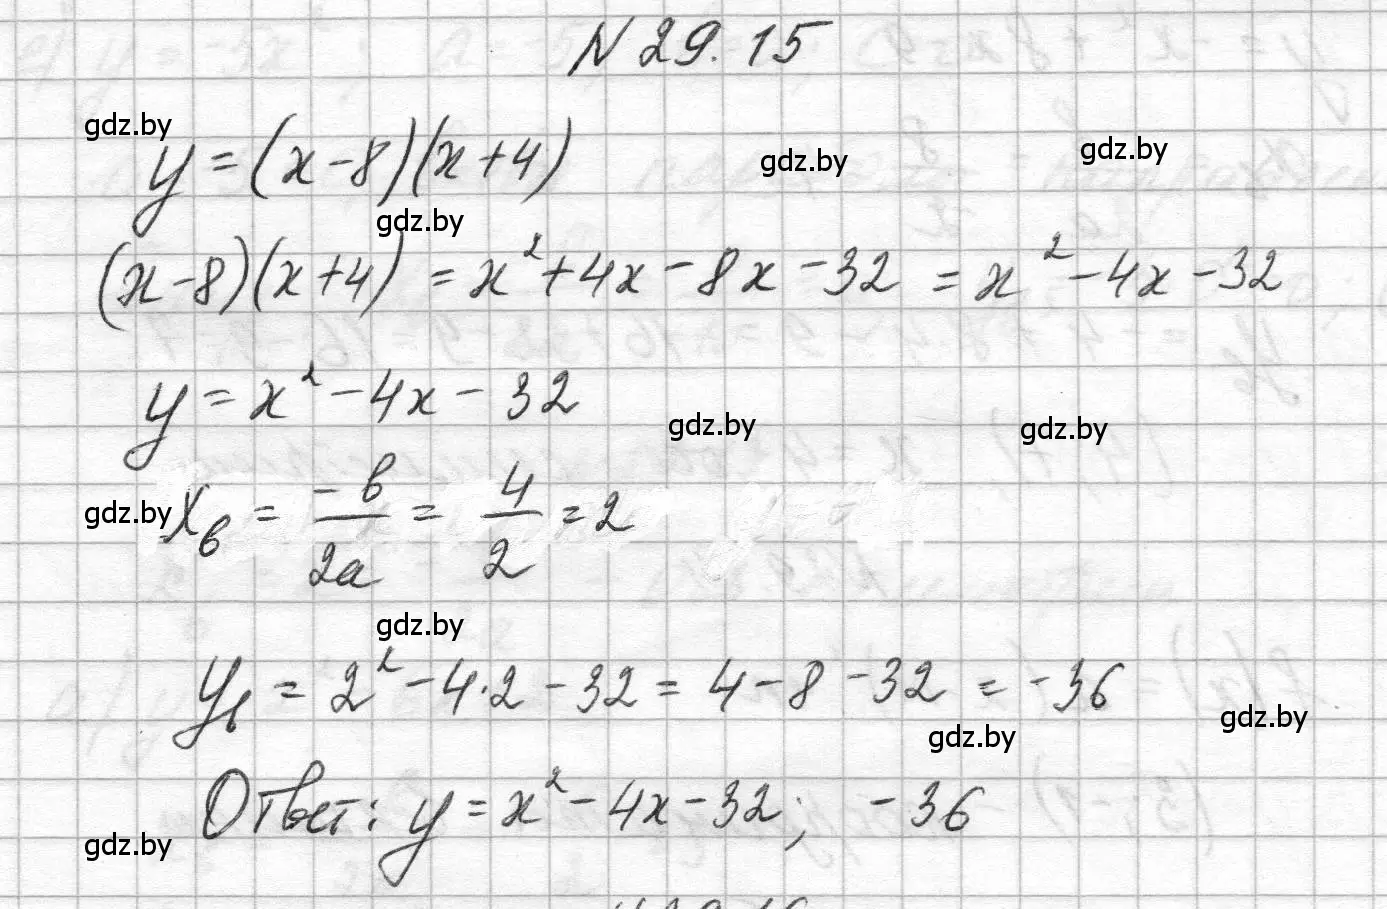 N 29.15
gdz.by
y = (x-8)(x+4)
gdz.by
gdz.by
gdz.by
(x-8)(x+4) = x²+4x-8x-32 = x²-4x-32
y = x²-4x-32
gdz.by
gdz.by
gdz.by
x_в = -в/2a = 4/2 = 2
gdz.by
y_в = 2²-4·2-32 = 4-8-32 = -36
gdz.by
gdz.by
Ответ: y = x²-4x-32; -36
gdz.by